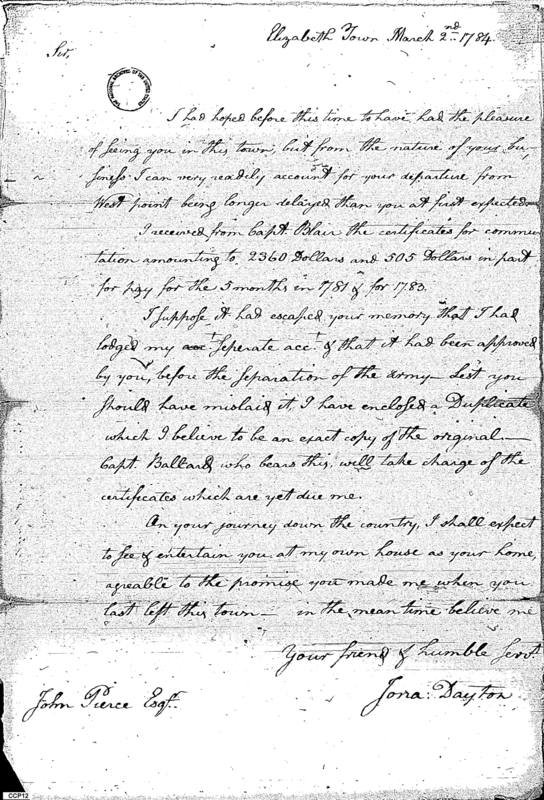 Elizabeth Town March 2nd 1784.
Sir,
I had hoped before this time to have had the pleasure
of seeing you in this town, but from the nature of your bu-
siness I can very readily account for your departure from
West point being longer delayed than you at first expected
I received from Capt. Blair the certificates for commu-
tation amounting to 2360 Dollars and 505 Dollars in part
for pay for the 5 months in 1781 & for 1783.
I suppose it had escaped your memory that I had
lodged my seperate acct. & that it had been approved
by you, before the separation of the army— Lest you
should have mislaid it, I have enclosed a Duplicate
which I believe to be an exact copy of the original.—
Capt. Ballard, who bears this, will take charge of the
certificates which are yet due me.
On your journey down the country, I shall expect
to see & entertain you at my own house as your home,
agreable to the promise you made me when you
last left this town— in the mean time believe me
Your friend & humble Servt.
Jona: Dayton
John Pierce Esqr.
CCP12